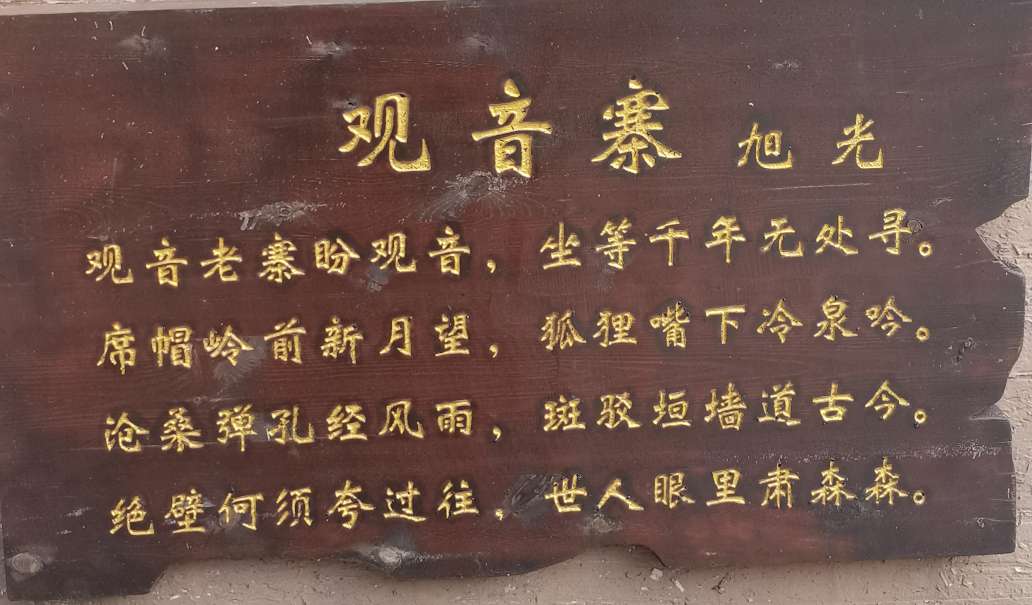 观音寨 旭光
观音老寨盼观音，坐等千年无处寻。
席帽岭前新月望，狐狸嘴下冷泉吟。
沧桑弹孔经风雨，斑驳垣墙道古今。
绝壁何须夸过往，世人眼里肃森森。